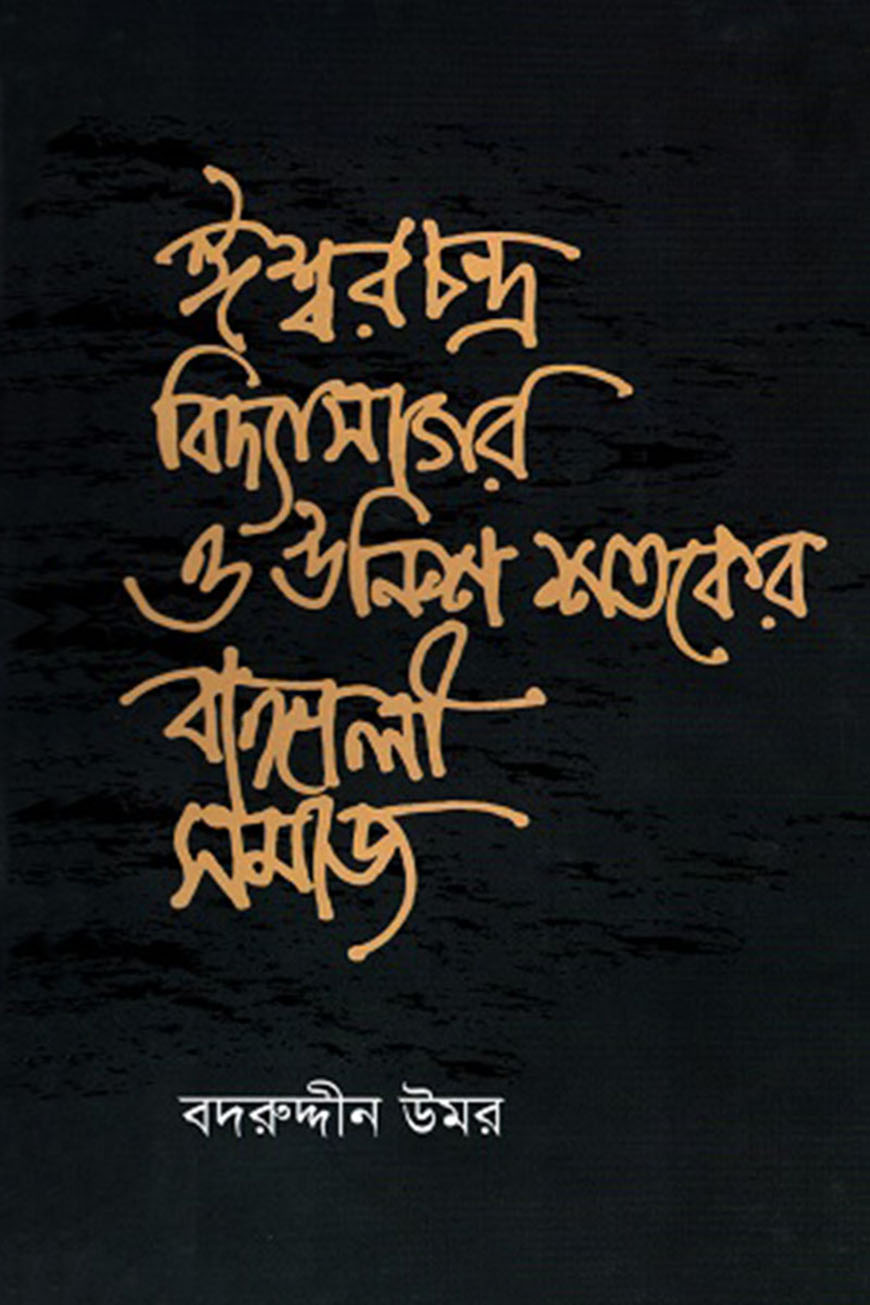 ঈশ্বরচন্দ্র
বিদ্যাসাগর
ও উনিশ শতকের
বাঙ্গালী
সমাজ
বদরুদ্দীন উমর